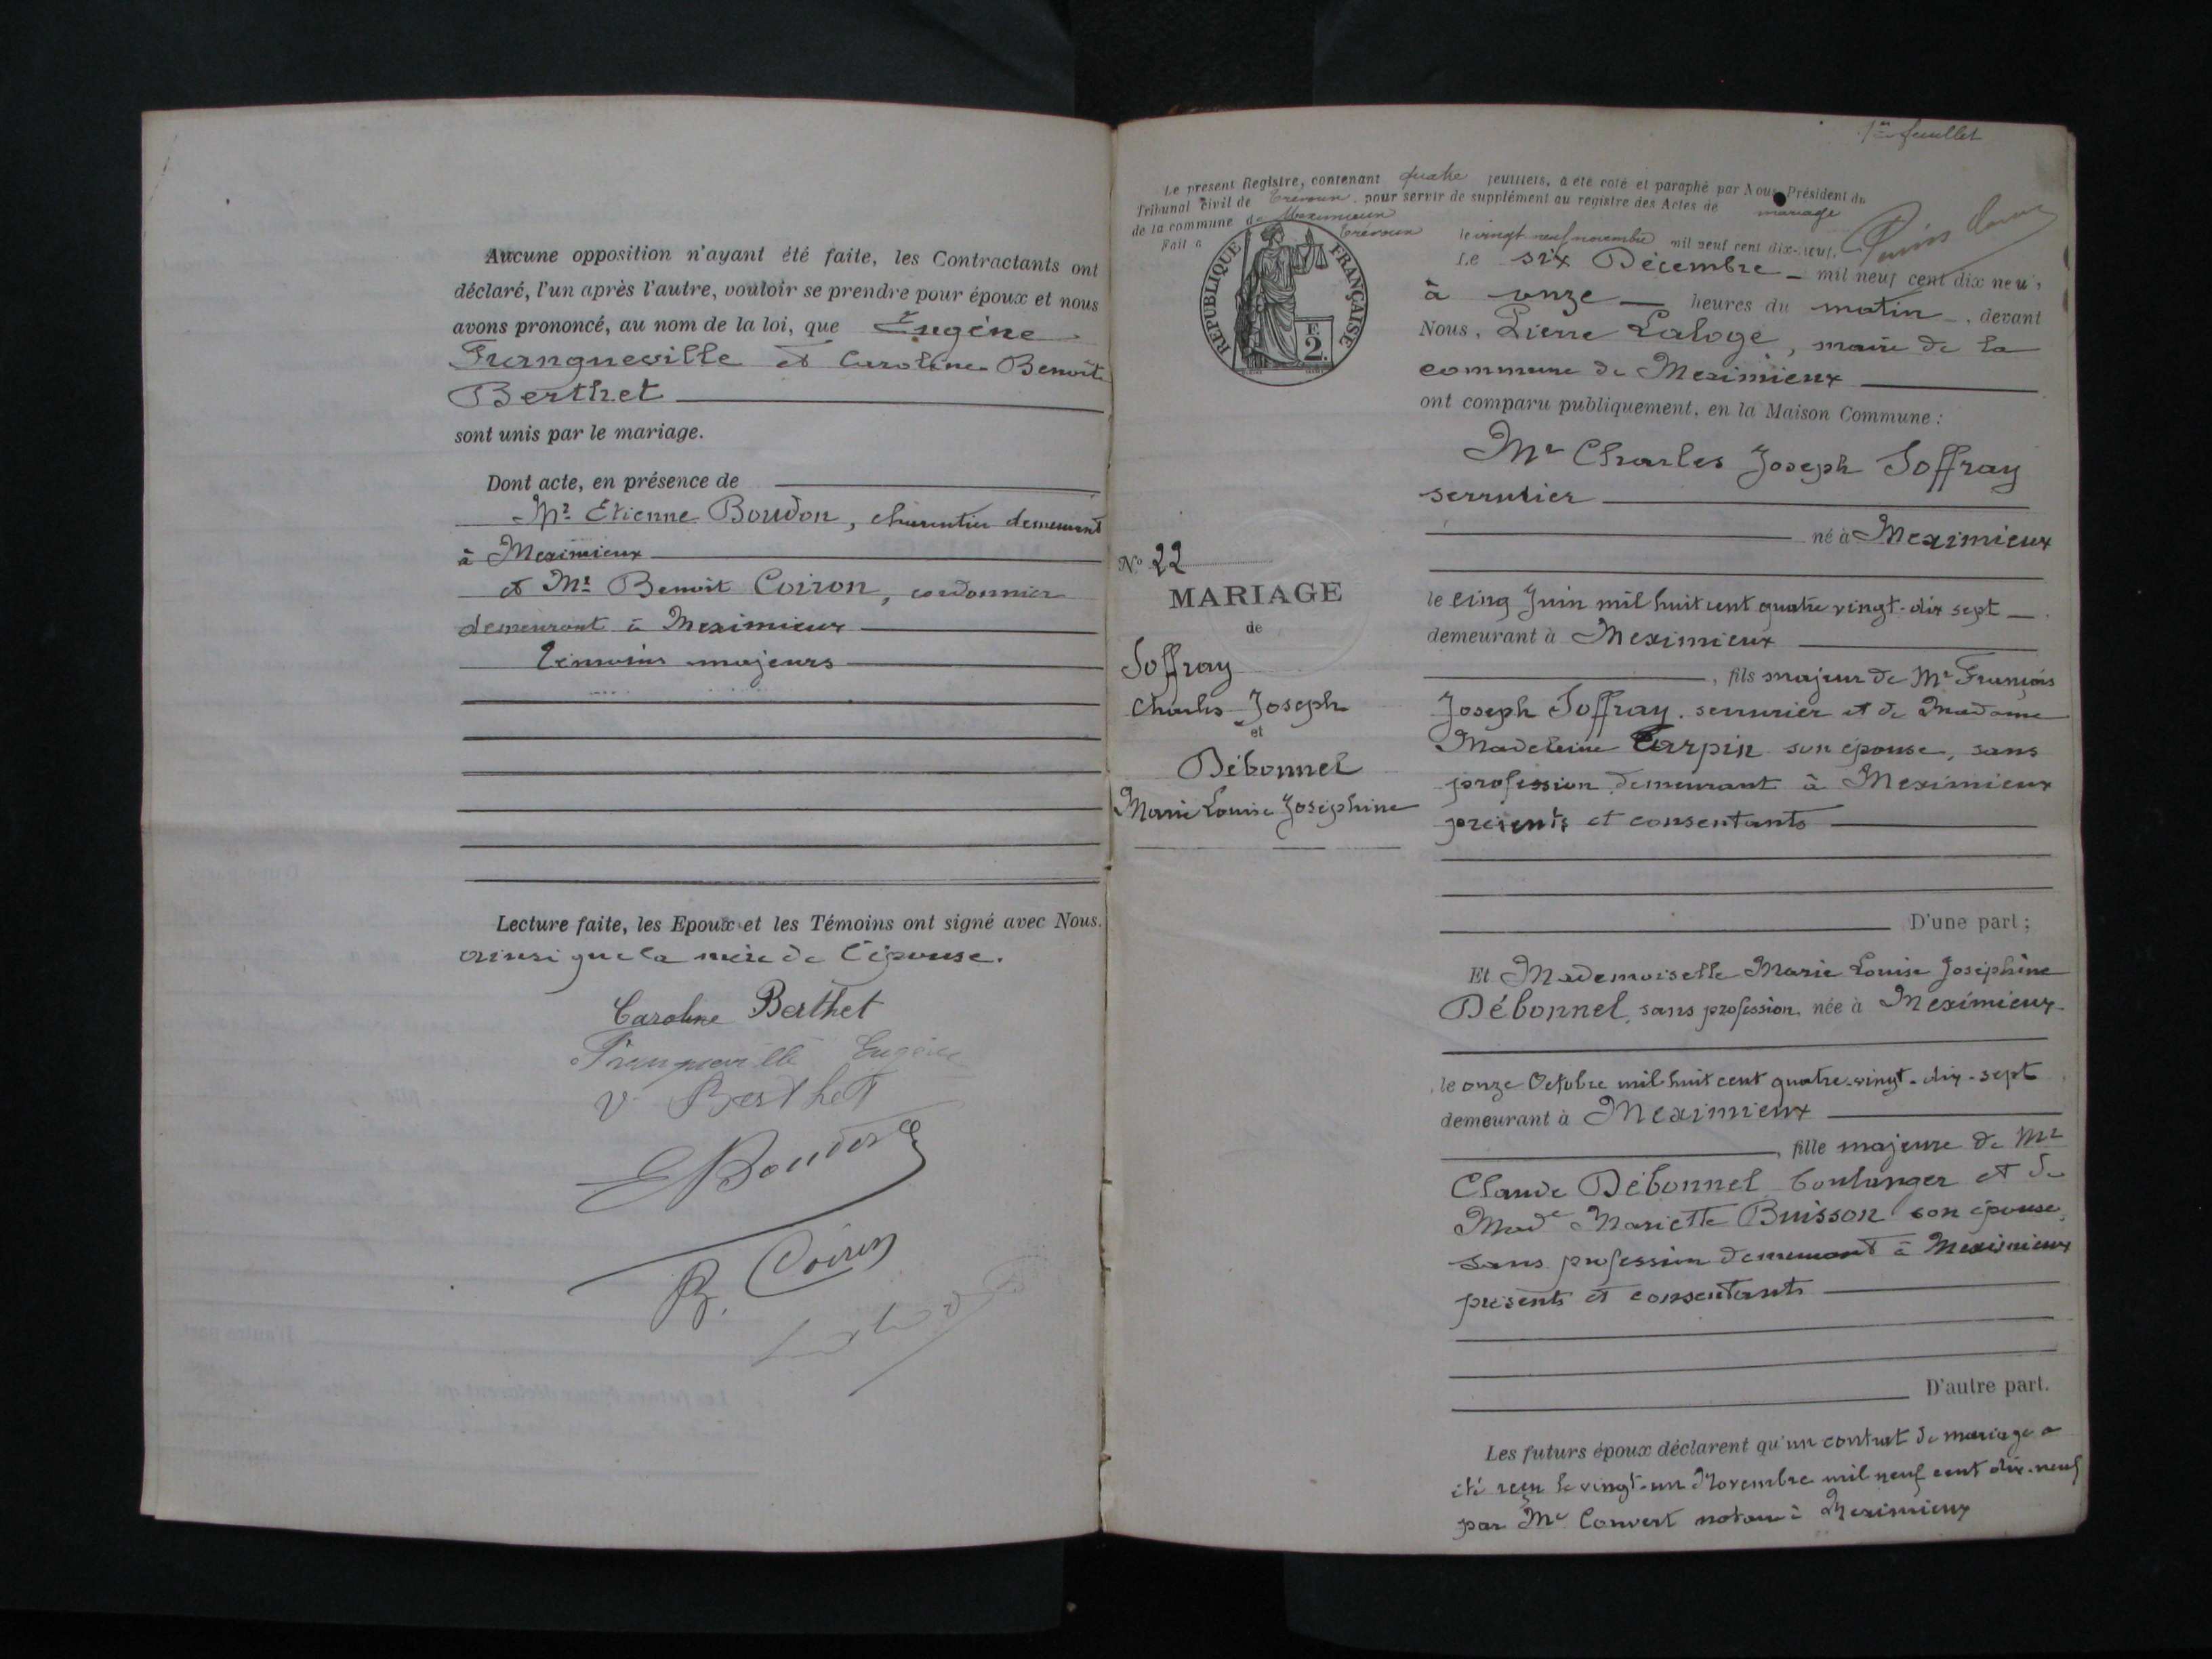 Aucune opposition n'ayant été faite, les Contractants ont
déclaré, l'un après l'autre, vouloir se prendre pour époux et nous
avons prononcé, au nom de la loi, que Eugène
Franqueville et Caroline Benoite
Berthet
sont unis par le mariage.
Dont acte, en présence de
Mr Etienne Boudon, charentier demeurant
à Meximieux
et Mr Benoit Coiron, cordonnier
demeurant à Meximieux
témoins majeurs
Lecture faite, les Epoux et les Témoins ont signé avec Nous.
ainsi que la mère de l'épouse.
Caroline Berthet
Franqueville Eugène
V. Berthet
E Boudon
B. Coiron
1er feuillet
Le présent Registre, contenant quatre feuillets, a été coté et paraphé par Nous Président du
Tribunal Civil de Trévoux pour servir de supplément au registre des Actes de mariage
de la commune de Meximieux
Fait à Trévoux le vingt neuf novembre mil neuf cent dix-neuf.
RÉPUBLIQUE FRANÇAISE
F.
2.
Le six Décembre mil neuf cent dix neuf,
à onze heures du matin, devant
Nous, Pierre Laloge, maire de la
commune de Meximieux
ont comparu publiquement, en la Maison Commune :
Mr Charles Joseph Soffray
serrurier
né à Meximieux
le cinq Juin mil huit cent quatre vingt-dix sept
demeurant à Meximieux
, fils majeur de Mr François
Joseph Soffray, serrurier et de Madame
Madeleine Carpin son épouse, sans
profession, demeurant à Meximieux
présents et consentants
D'une part ;
No 22
MARIAGE
de
Soffray
Charles Joseph
et
Débonnel
Marie Louise Joséphine
Et Mademoiselle Marie Louise Joséphine
Débonnel, sans profession, née à Meximieux
le onze Octobre mil huit cent quatre-vingt-dix-sept
demeurant à Meximieux
, fille majeure de Mr
Claude Débonnel boulanger et de
Made Mariette Buisson son épouse,
sans profession demeurant à Meximieux
présents et consentants
D'autre part.
Les futurs époux déclarent qu'un contrat de mariage a
été reçu le vingt-un Novembre mil neuf cent dix-neuf
par Me Convert notaire à Meximieux